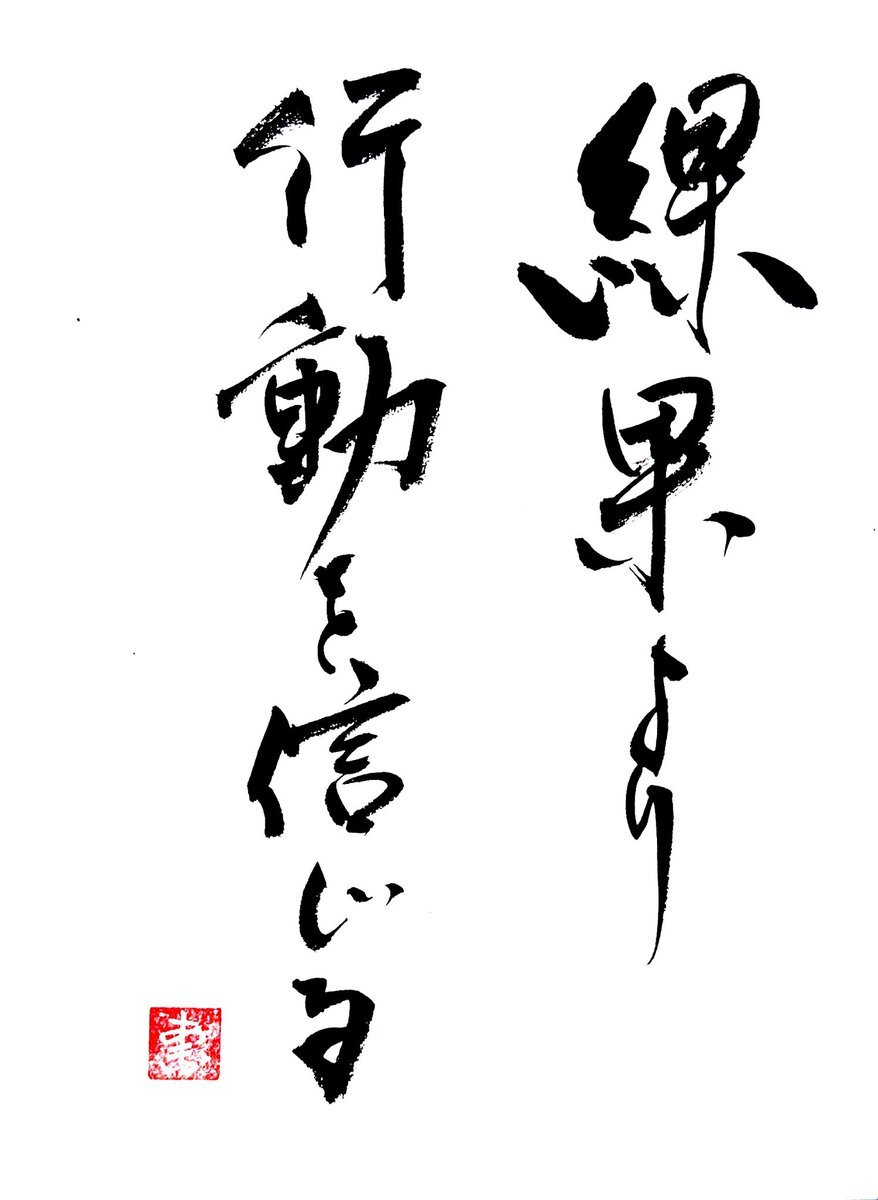 綶果より
行動を信じる